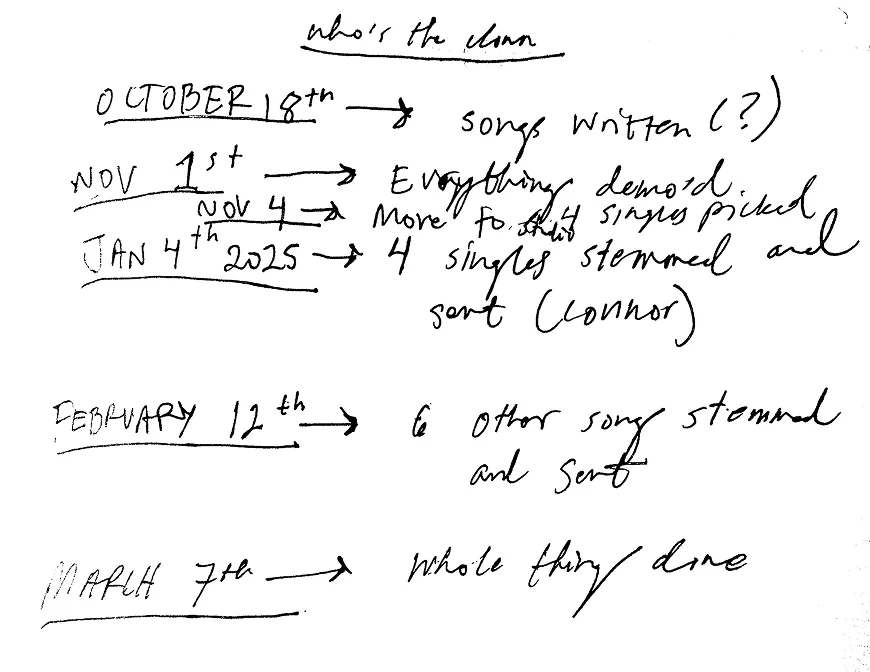 who's the clown
OCTOBER 18th → songs written (?)
NOV 1st → Everything demo'd
NOV 4 → Move to studio 4 singles picked
JAN 4th 2025 → 4 singles stemmed and
sent (Connor)
FEBRUARY 12th → 6 other song stemmed
and sent
MARCH 7th → whole thing done